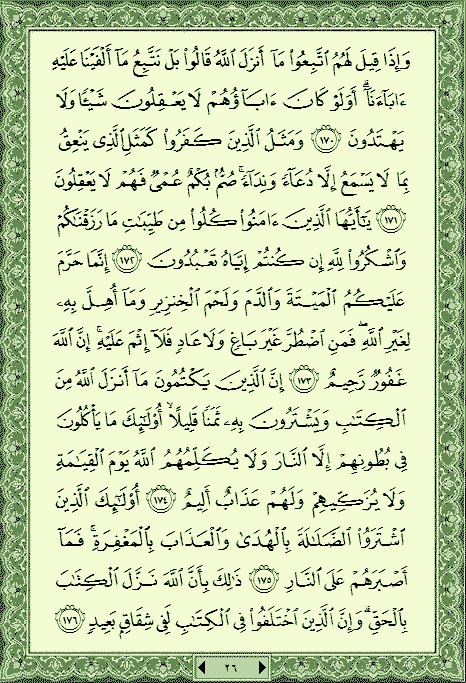 وَإِذَا قِيلَ لَهُمُ اتَّبِعُوا۟ مَآ أَنزَلَ اللَّهُ قَالُوا۟ بَلْ نَتَّبِعُ مَآ أَلْفَيْنَا عَلَيْهِ
ءَابَآءَنَآ ۗ أَوَلَوْ كَانَ ءَابَآؤُهُمْ لَا يَعْقِلُونَ شَيْـًٔا وَلَا
يَهْتَدُونَ ١٧٠ وَمَثَلُ الَّذِينَ كَفَرُوا۟ كَمَثَلِ الَّذِى يَنْعِقُ
بِمَا لَا يَسْمَعُ إِلَّا دُعَآءً وَنِدَآءً ۚ صُمٌّۢ بُكْمٌ عُمْىٌ فَهُمْ لَا يَعْقِلُونَ
١٧١ يَـٰٓأَيُّهَا الَّذِينَ ءَامَنُوا۟ كُلُوا۟ مِن طَيِّبَـٰتِ مَا رَزَقْنَـٰكُمْ
وَاشْكُرُوا۟ لِلَّهِ إِن كُنتُمْ إِيَّاهُ تَعْبُدُونَ ١٧٢ إِنَّمَا حَرَّمَ
عَلَيْكُمُ الْمَيْتَةَ وَالدَّمَ وَلَحْمَ الْخِنزِيرِ وَمَآ أُهِلَّ بِهِۦ
لِغَيْرِ اللَّهِ ۖ فَمَنِ اضْطُرَّ غَيْرَ بَاغٍ وَلَا عَادٍ فَلَآ إِثْمَ عَلَيْهِ ۚ إِنَّ اللَّهَ
غَفُورٌ رَّحِيمٌ ١٧٣ إِنَّ الَّذِينَ يَكْتُمُونَ مَآ أَنزَلَ اللَّهُ مِنَ
الْكِتَـٰبِ وَيَشْتَرُونَ بِهِۦ ثَمَنًا قَلِيلًا ۙ أُو۟لَـٰٓئِكَ مَا يَأْكُلُونَ
فِى بُطُونِهِمْ إِلَّا النَّارَ وَلَا يُكَلِّمُهُمُ اللَّهُ يَوْمَ الْقِيَـٰمَةِ
وَلَا يُزَكِّيهِمْ وَلَهُمْ عَذَابٌ أَلِيمٌ ١٧٤ أُو۟لَـٰٓئِكَ الَّذِينَ
اشْتَرَوُا۟ الضَّلَـٰلَةَ بِالْهُدَىٰ وَالْعَذَابَ بِالْمَغْفِرَةِ ۚ فَمَآ
أَصْبَرَهُمْ عَلَى النَّارِ ١٧٥ ذَٰلِكَ بِأَنَّ اللَّهَ نَزَّلَ الْكِتَـٰبَ
بِالْحَقِّ ۗ وَإِنَّ الَّذِينَ اخْتَلَفُوا۟ فِى الْكِتَـٰبِ لَفِى شِقَاقٍۭ بَعِيدٍ ١٧٦
٢٦